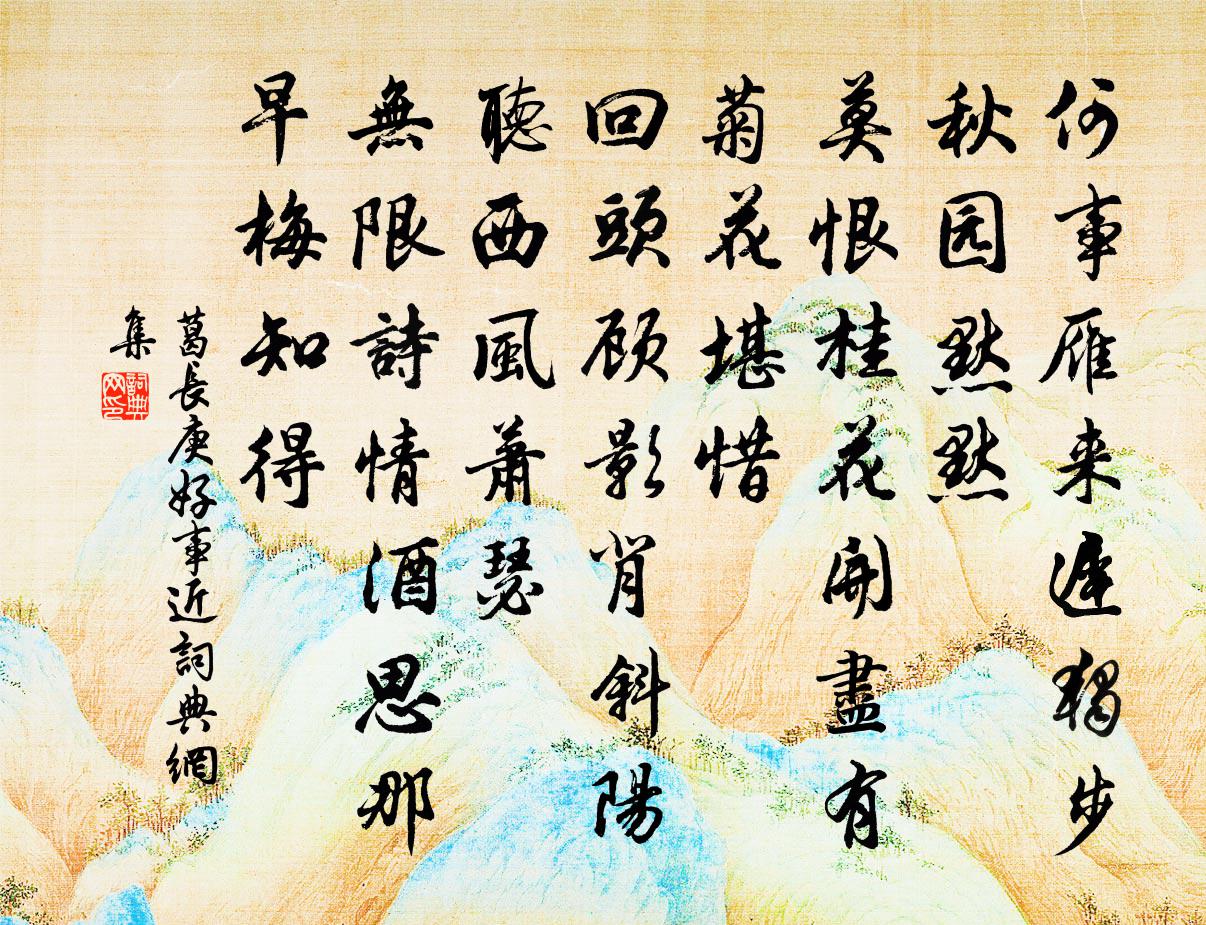 何事雁来遲獨步
秋园黙黙
莫恨桂花開盡有
菊花堪惜
回頭顾影背斜陽
聽西風蕭瑟
無限詩情酒思那
早梅知得
葛長庚好事近詞典網
集
詞典
网印